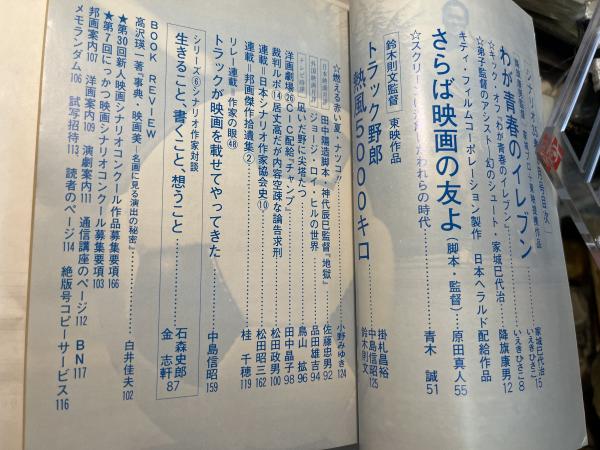 わが青春のイレブン
家城巳代治15
いえきひさこ8
☆キック・オフ『わが青春のイレブン』
降旗康男12
☆弟子監督のアシスト・幻のシュート・家城巳代治
キティ・フィルムコーポレーション製作 日本ヘラルド配給作品
さらば映画の友よ(脚本・監督)原田真人55
青木 誠51
鈴木則文監督 東映作品
トラック野郎
熱風5000キロ
掛札昌裕
中島信昭125
鈴木則文
☆燃える赤い夏・ナツコ!!
小野みゆき124
田中陽造脚本・神代辰巳監督『地獄』
佐藤忠男92
ジョージ・ロイ・ヒルの世界
品田雄吉94
凪いだ野に尖塔たつ
鳥山 拡96
洋画劇場㉖CIC配給『チャンプ』
田中晶子98
裁判ルポ⑭居丈高だが内容空疎な論告求刑
松田政男100
連載=日本シナリオ作家協会史⑩
松田昭三162
連載=邦画傑作拾遺集②
桂 千穂119
リレー連載=作家の眼㊽
トラックが映画を載せてやってきた
中島信昭159
シリーズ⑥シナリオ作家対談
生きること、書くこと、想うこと
石森史郎
金 志軒87
BOOK REVIEW
高沢瑛一著『事典・映画美―名画に見る演出の秘密』
白井佳夫102
★第30回新人映画シナリオコンクール作品募集要項166
★第7回にっかつ映画シナリオコンクール募集要項103
邦画案内107 洋画案内109 演劇案内111 通信講座のページ112 BN117
メモランダム106 試写招待113 読者のページ114 絶版号コピーサービス116